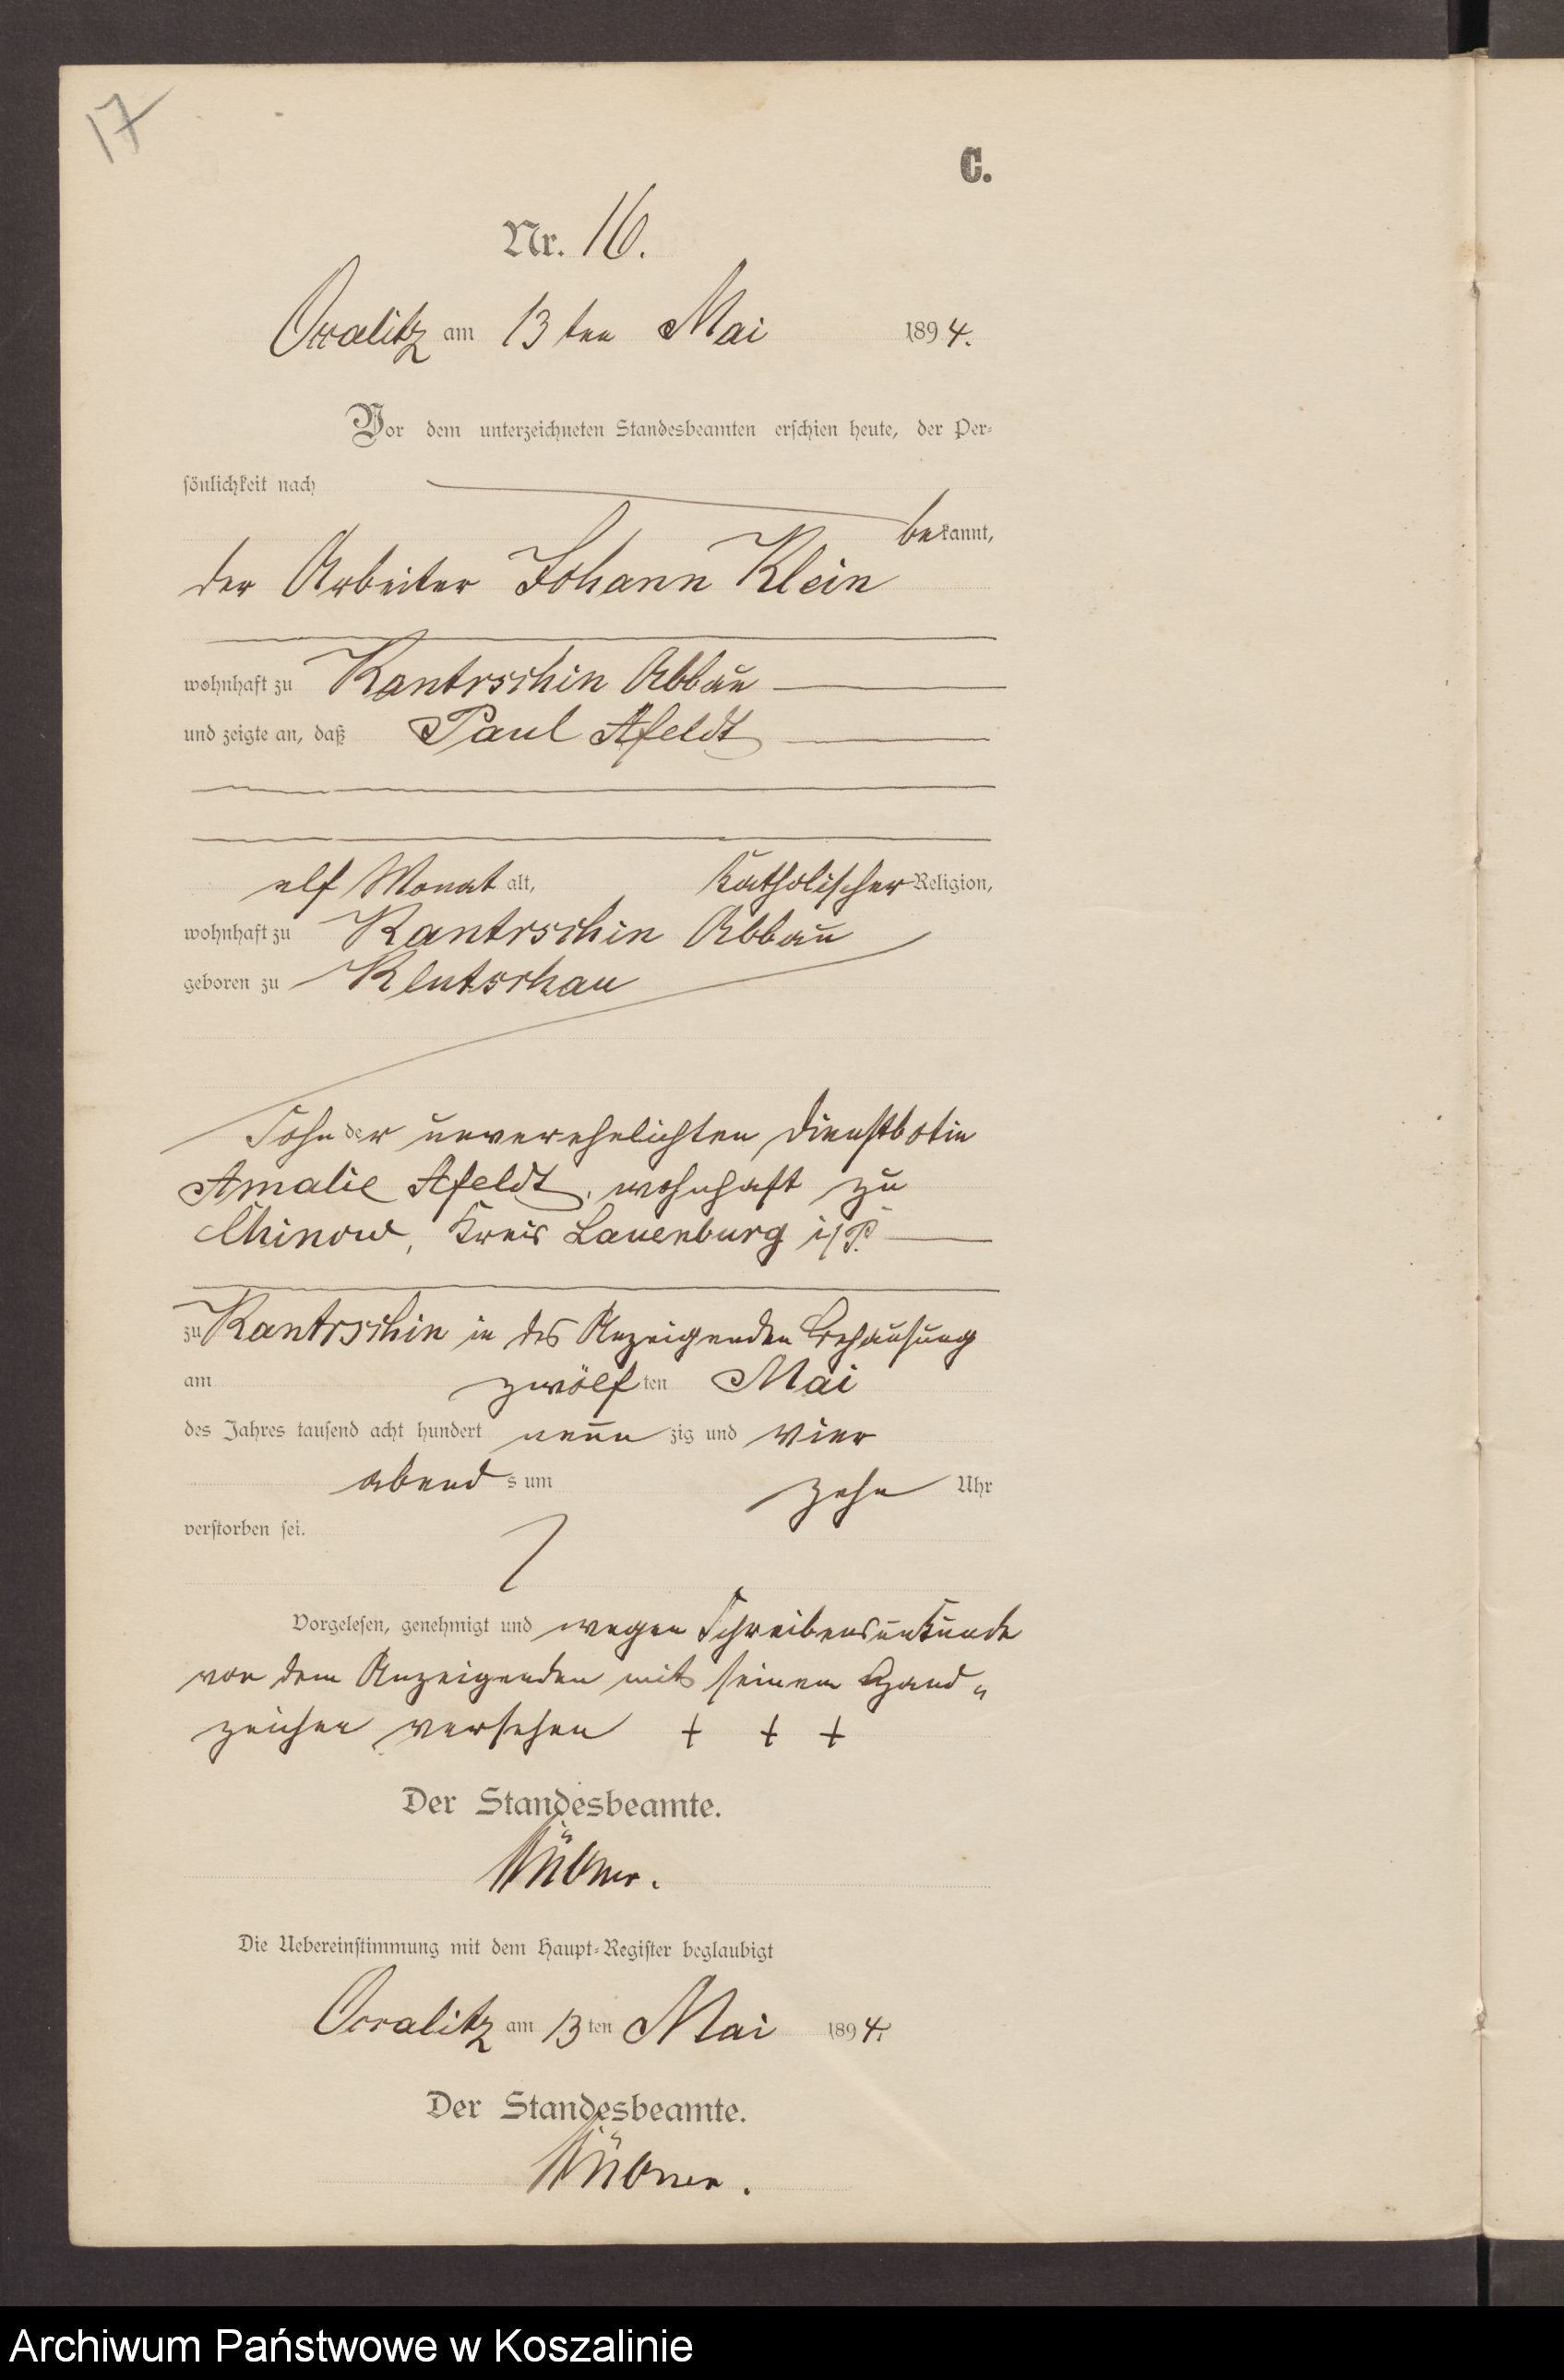 17
C.
Nr. 16.
Occalitz am 13 ten Mai 1894.
Vor dem unterzeichneten Standesbeamten erschien heute, der Per-
sönlichkeit nach
bekannt,
der Arbeiter Johann Klein
wohnhaft zu Kantrschin Abbau
und zeigte an, daß Paul Afeldt
elf Monat alt, Katholischer Religion,
wohnhaft zu Kantrschin Abbau
geboren zu Klutschau
Sohn der unverehelichten Dienstbotin
Amalie Afeldt, wohnhaft zu
Chinow, Kreis Lauenburg i/P.
zu Kantrschin in des Anzeigenden Behausung
am zwölften Mai
des Jahres tausend acht hundert neunzig und vier
abends um zehn Uhr
verstorben sei.
Vorgelesen, genehmigt und wegen Schreibensunkunde
von dem Anzeigenden mit seinem Hand-
zeichen versehen + + +
Der Standesbeamte.
Die Uebereinstimmung mit dem Haupt-Register beglaubigt
Occalitz am 13ten Mai 1894.
Der Standesbeamte.
Archiwum Państwowe w Koszalinie